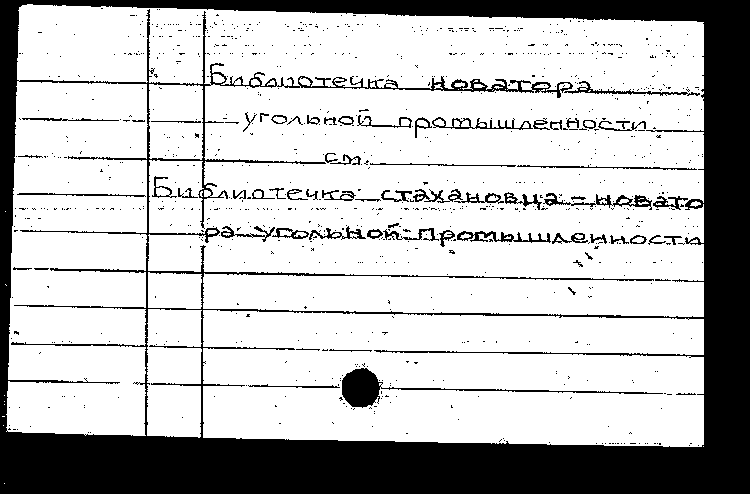 Библиотечка новатора
угольной промышленности
см.
Библиотечка стахановца = новато
ра угольной промышленности